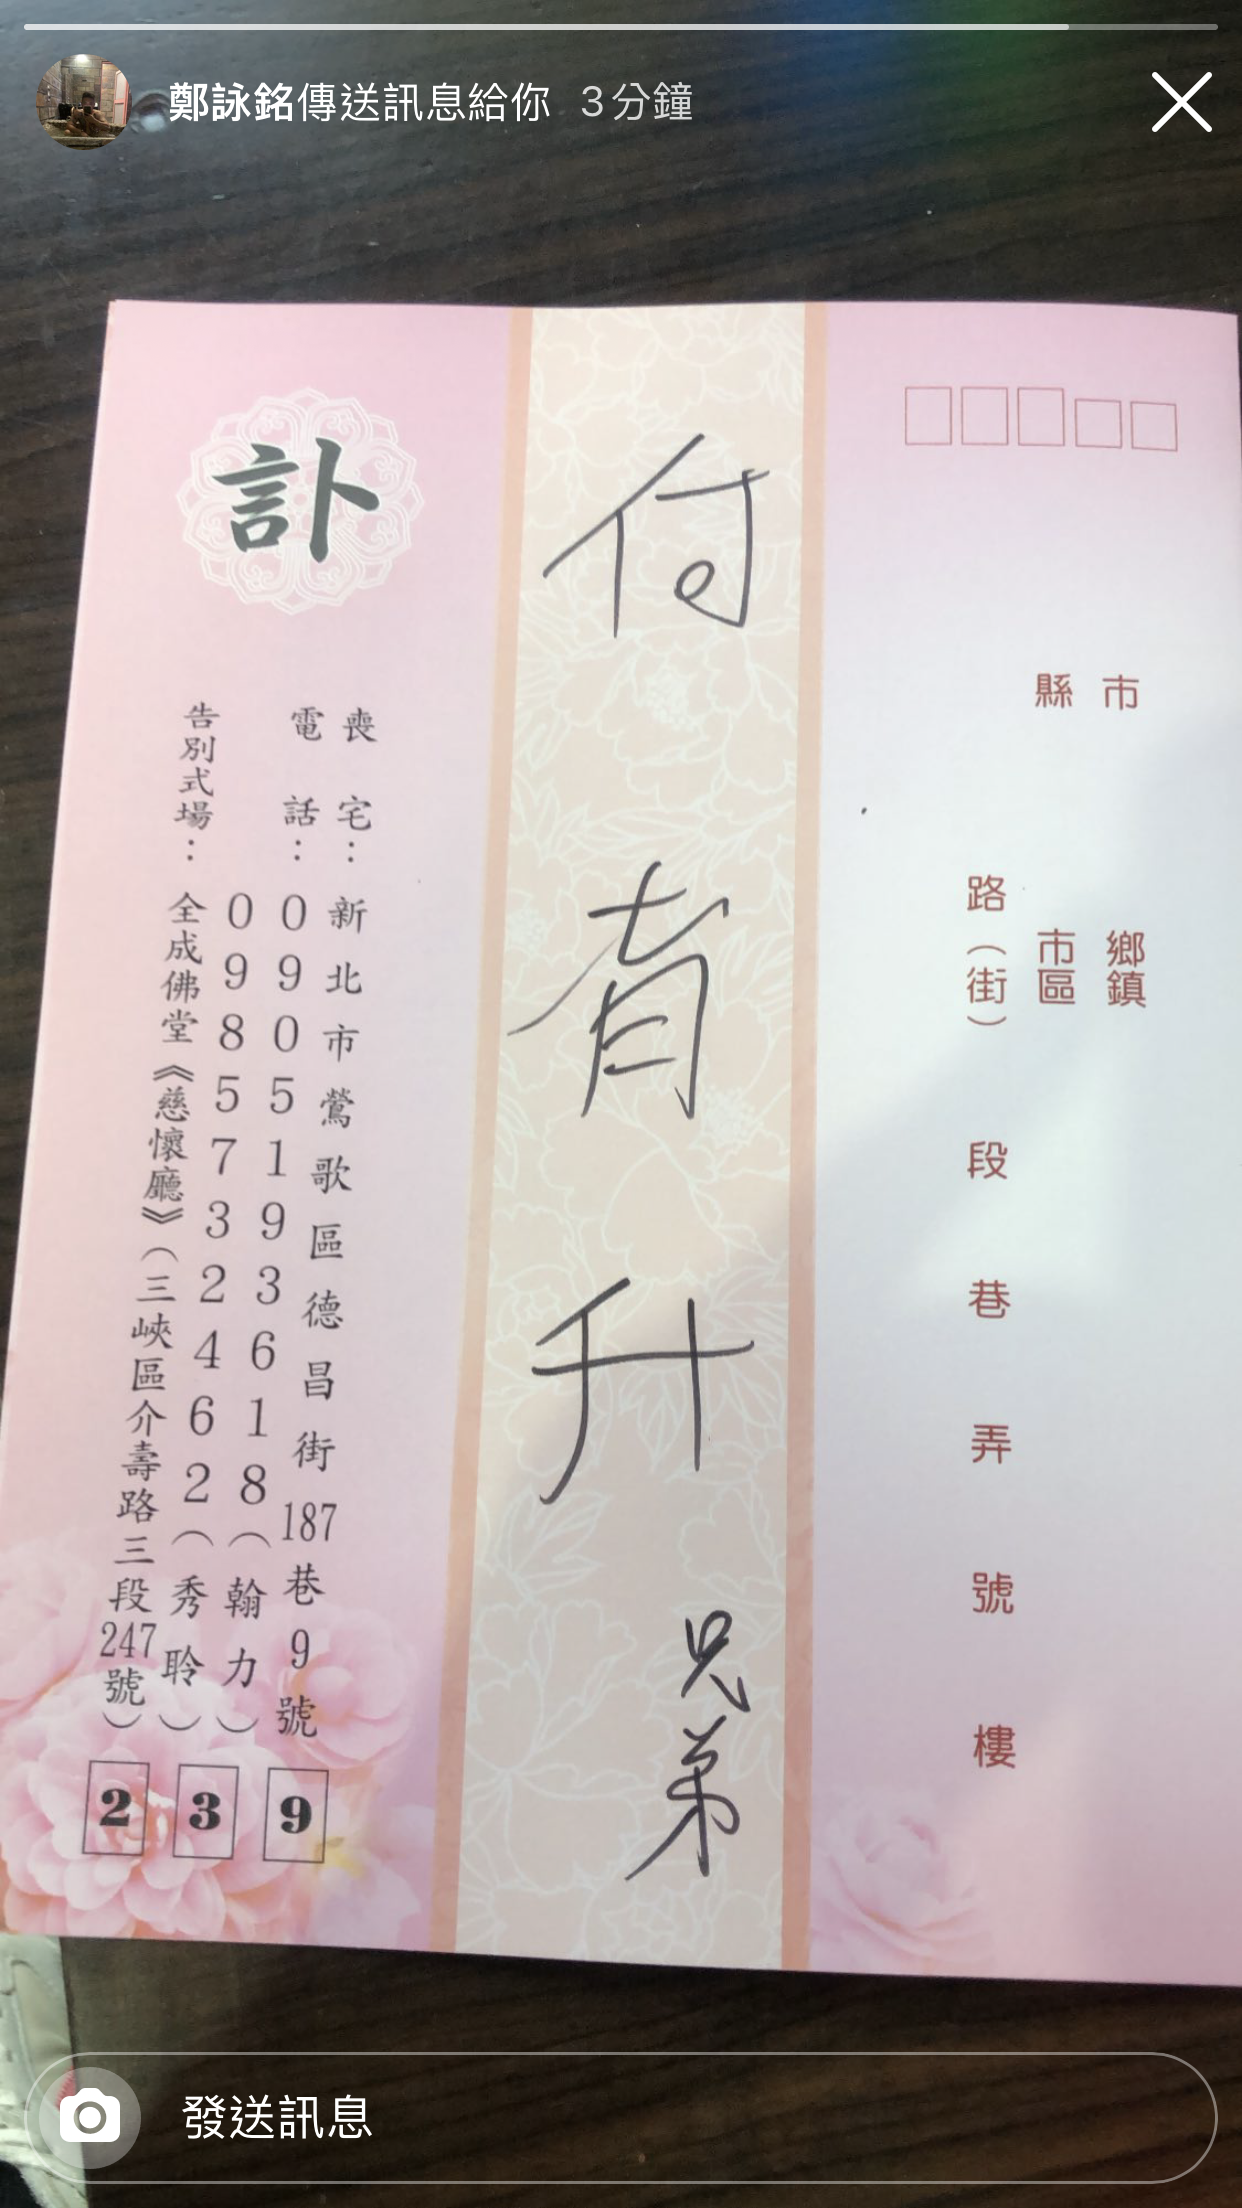 鄭詠銘傳送訊息給你 3分鐘
市
縣
鄉鎮
市區
路(街)
段
巷
弄
號
樓
付有升
兄弟
訃
喪宅:新北市鶯歌區德昌街187巷9號
電話:0905193618(翰力)
0985732462(秀聆)
告別式場:全成佛堂《慈懷廳》(三峽區介壽路三段247號)
239
發送訊息